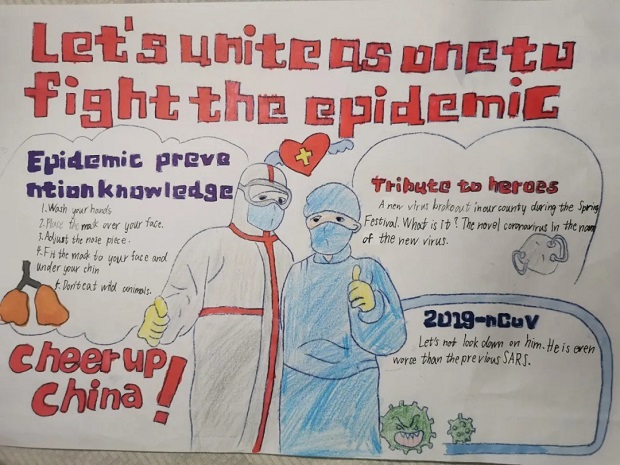 Let's unite as one to
fight the epidemic
Epidemic preve
ntion knowledge
1. Wash your hands
2. Place the mask over your face.
3. Adjust the nose piece.
4. Fit the mask to your face and
under your chin
5. Don't eat wild animals.
Cheer up
China!
Tribute to heroes
A new virus brokeout in our county during the Spring
Festival. What is it? The novel coronavirus In the name
of the new virus.
2019-nCoV
Let's not look down on him. He is even
worse than the previous SARS.